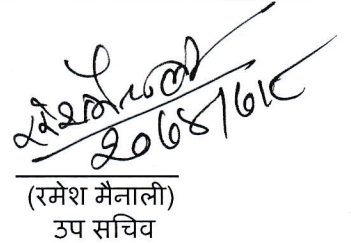 रमेश मैनाली
२०७४/७/८
(रमेश मैनाली)
उप सचिव